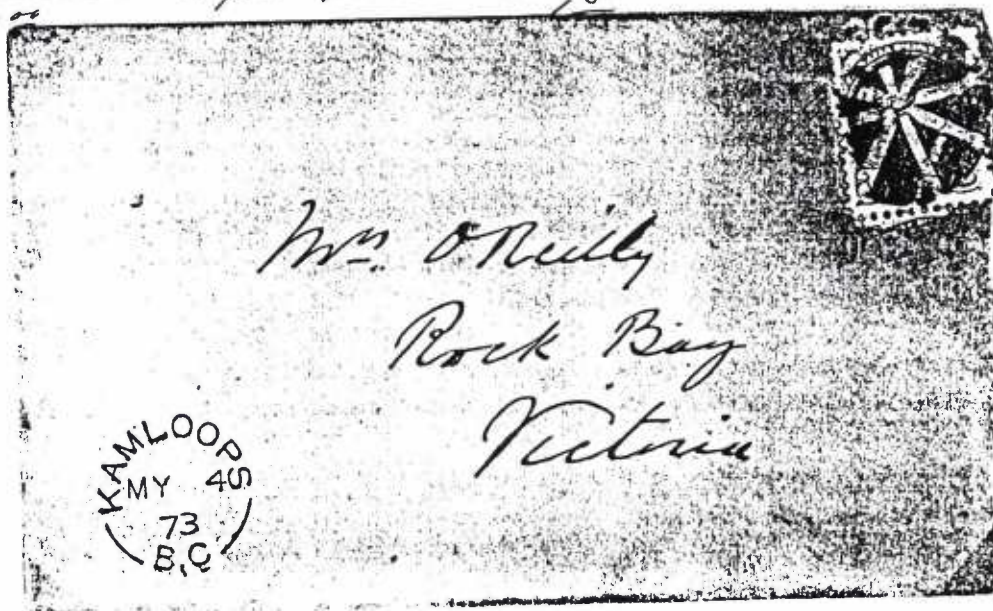 Mrs O'Reilly
Rock Bay
Victoria
KAMLOOPS
MY 4
73
B.C